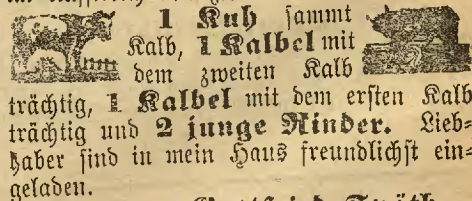 1 Kuh sammt
Kalb, 1 Kalbel mit
dem zweiten Kalb
trächtig, 1 Kalbel mit dem ersten Kalb
trächtig und 2 junge Rinder. Lieb-
haber sind in mein Haus freundlichst ein-
geladen.